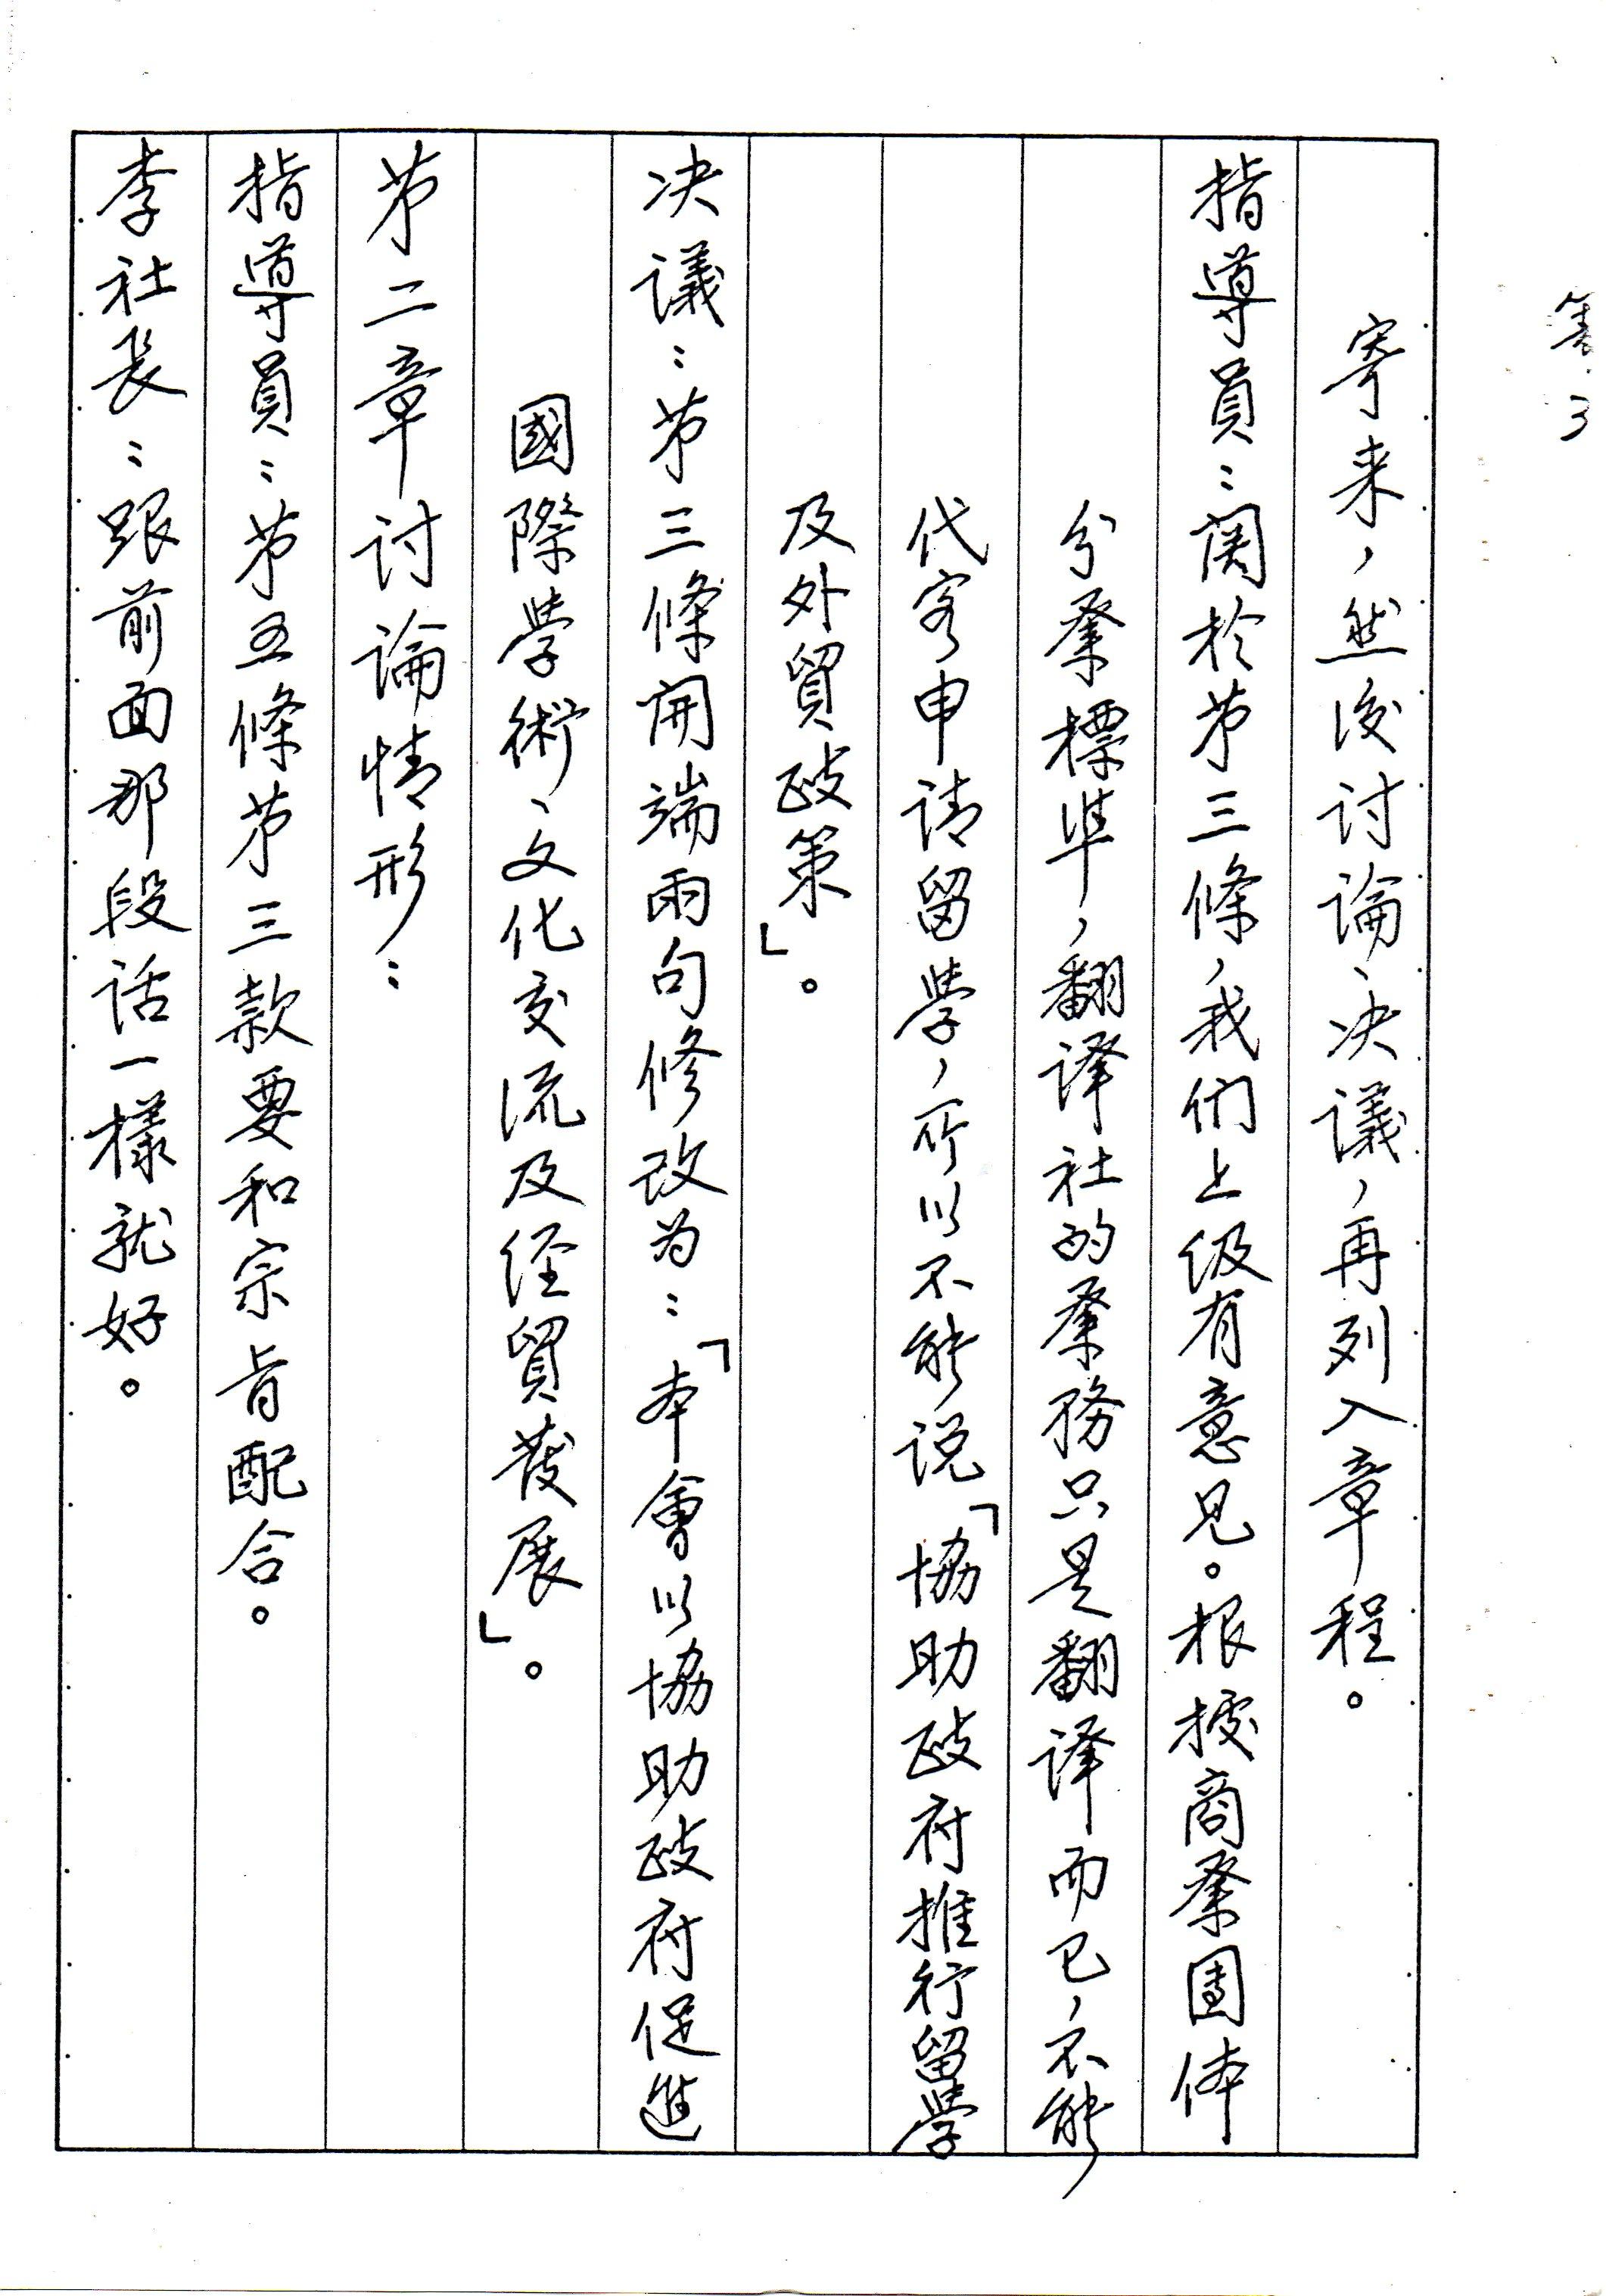 寄来，然後讨論、决議，再列入章程。
指導員：関於第三條，我们上级有意見。根據商業團体
分業標準，翻译社的業務只是翻译而已，不能
代客申请留學，所以不能说「協助政府推行留學
及外貿政策」。
决議：第三條開端兩句修改为：「本會以協助政府促進
國際學術、文化交流及经貿發展」。
第二章讨論情形：
指導員：第五條第三款要和宗旨配合。
李社長：跟前面那段话一樣就好。